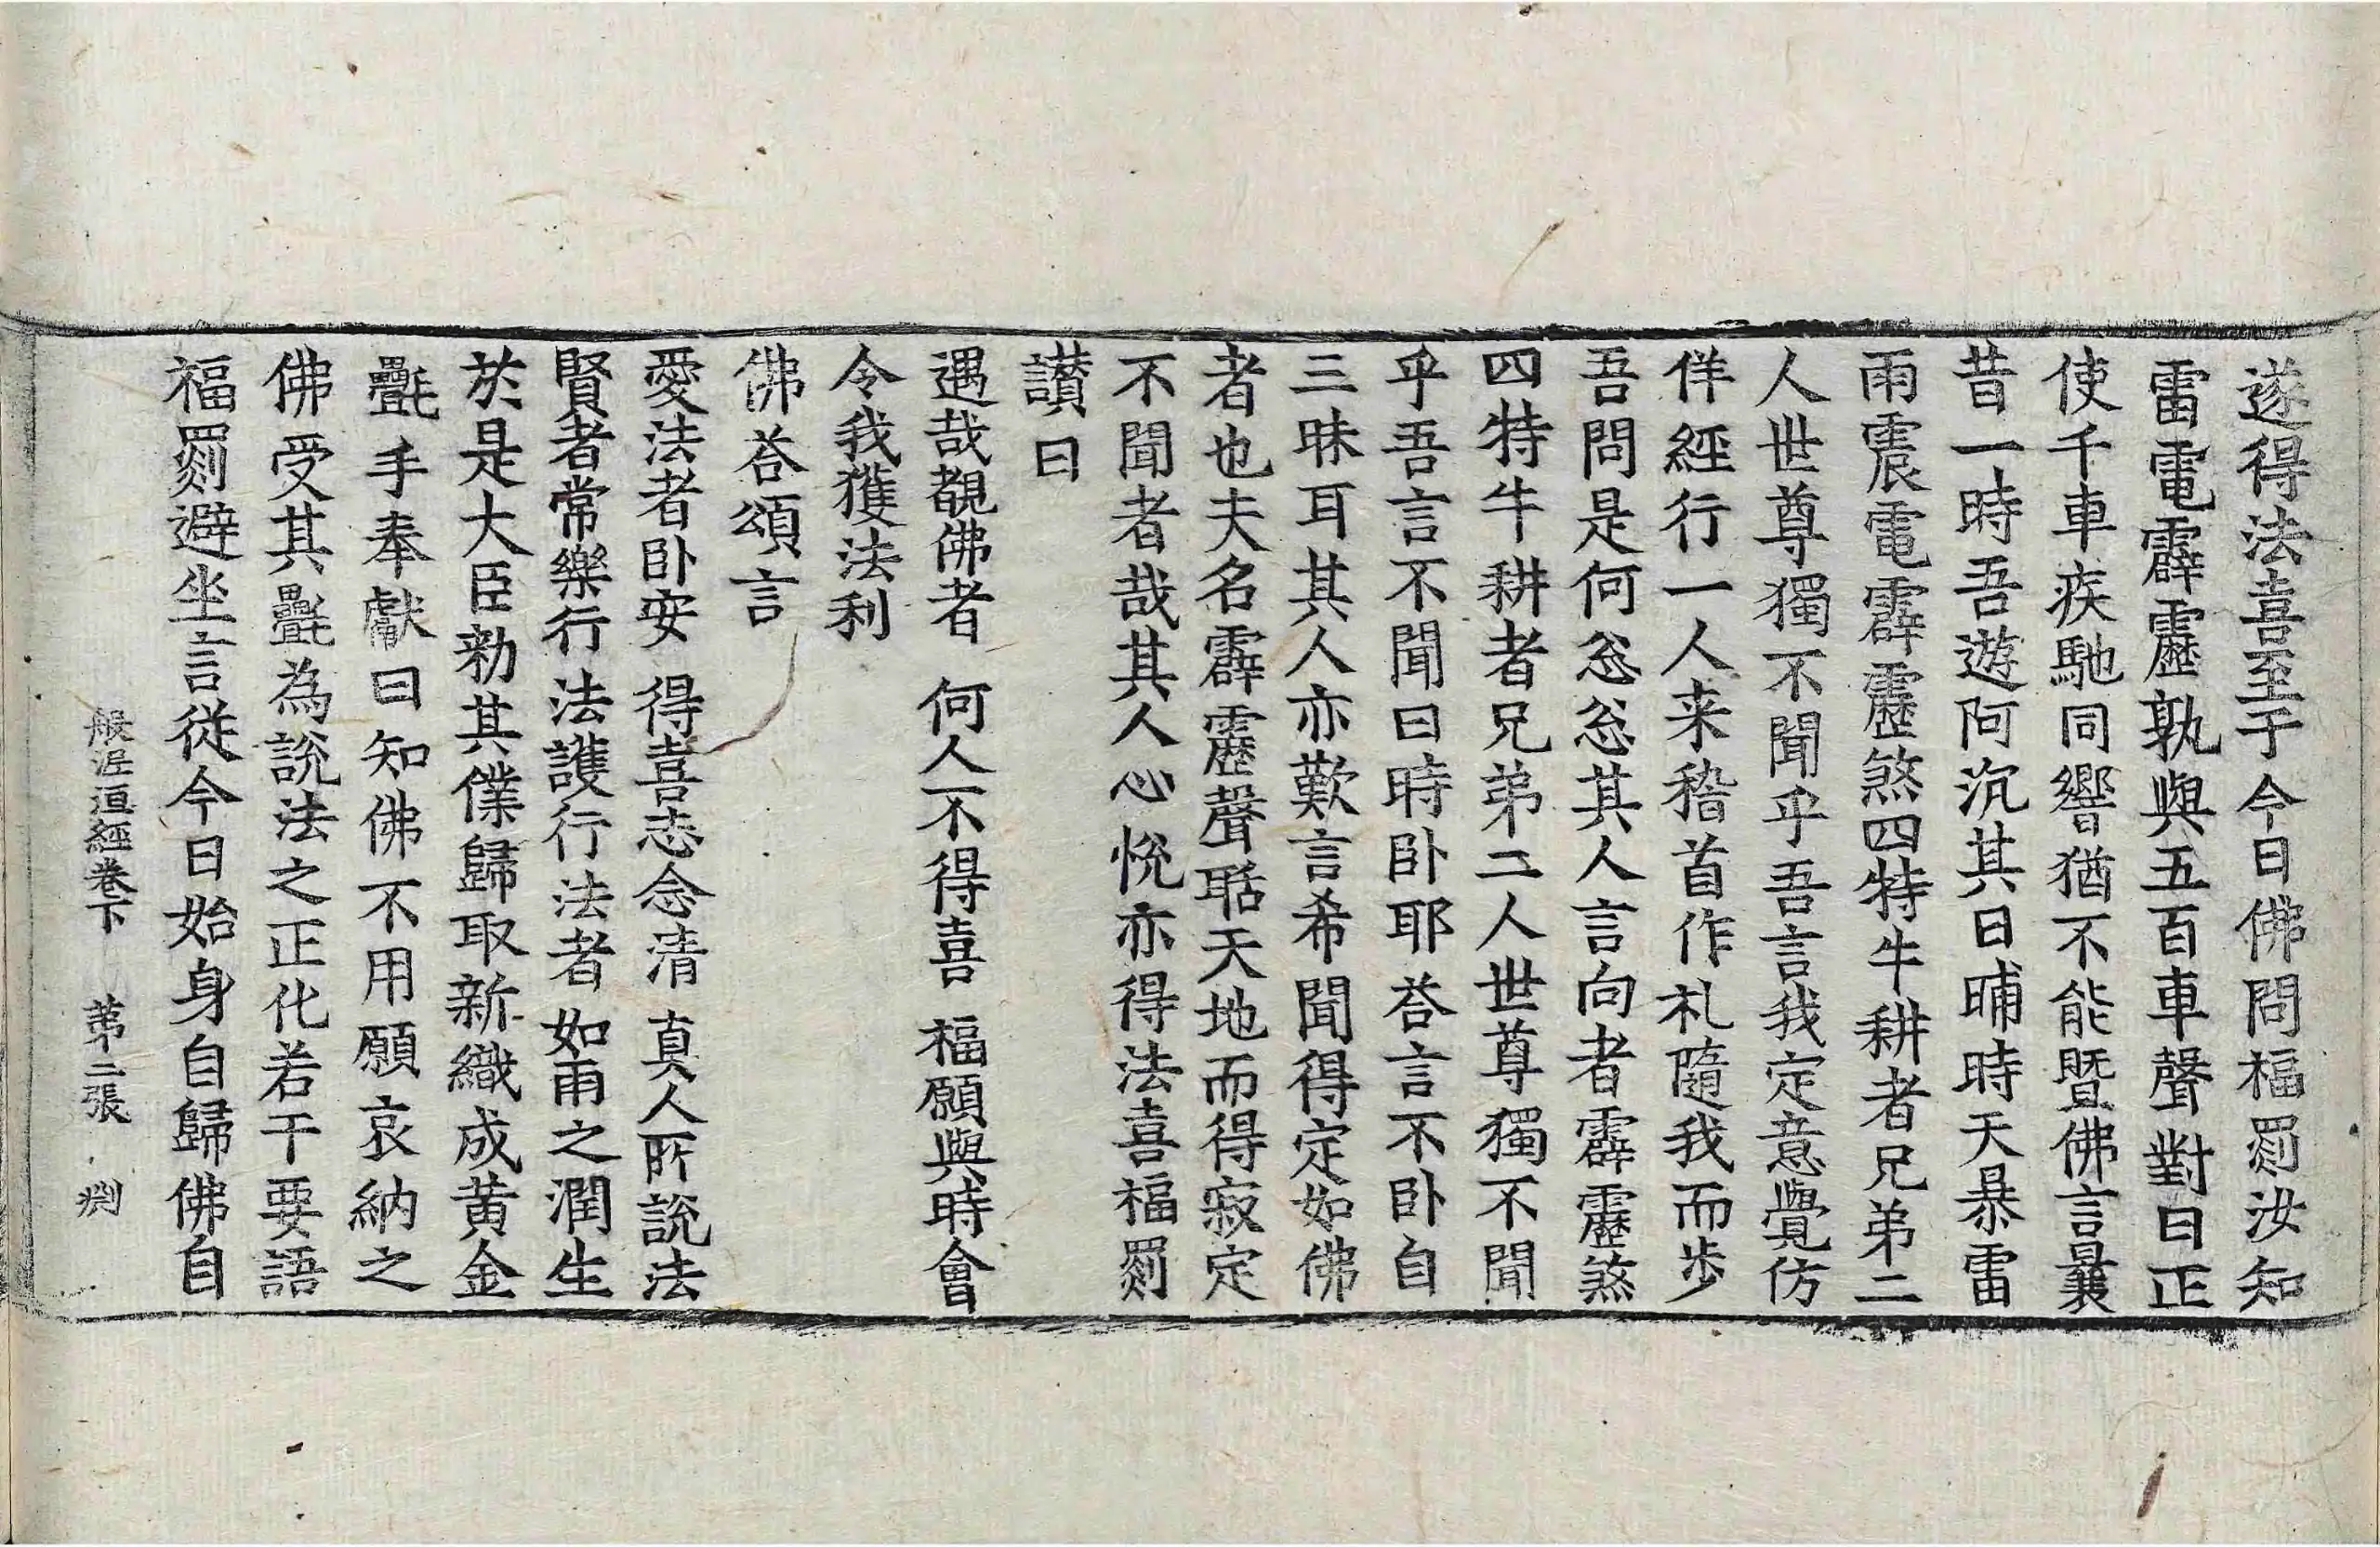 遂得法喜至于今日佛問福罽汝知
雷電霹靂孰與五百車聲對曰正
使千車疾馳同響猶不能暨佛言曩
昔一時吾遊阿沉其日晡時天暴雷
雨震電霹靂煞四特牛耕者兄弟二
人世尊獨不聞乎吾言我定意覺仿
佯經行一人来稽首作礼隨我而步
吾問是何忩忩其人言向者霹靂煞
四特牛耕者兄弟二人世尊獨不聞
乎吾言不聞曰時卧耶荅言不卧自
三昧耳其人亦歎言希聞得定如佛
者也夫名霹靂聲聒天地而得寂定
不聞者哉其人心恱亦得法喜福罽
讃曰
遇哉覩佛者　何人不得喜　福願與時會
令我獲法利
佛荅頌言
愛法者卧安　得喜志念清　真人所說法
賢者常樂行　法護行法者　如雨之潤生
於是大臣勑其僕歸取新織成黄金
㲲手奉獻曰知佛不用願哀納之
佛受其㲲為說法之正化若干要語
福罽避坐言從今日始身自歸佛自
般泥洹經卷下　第二張